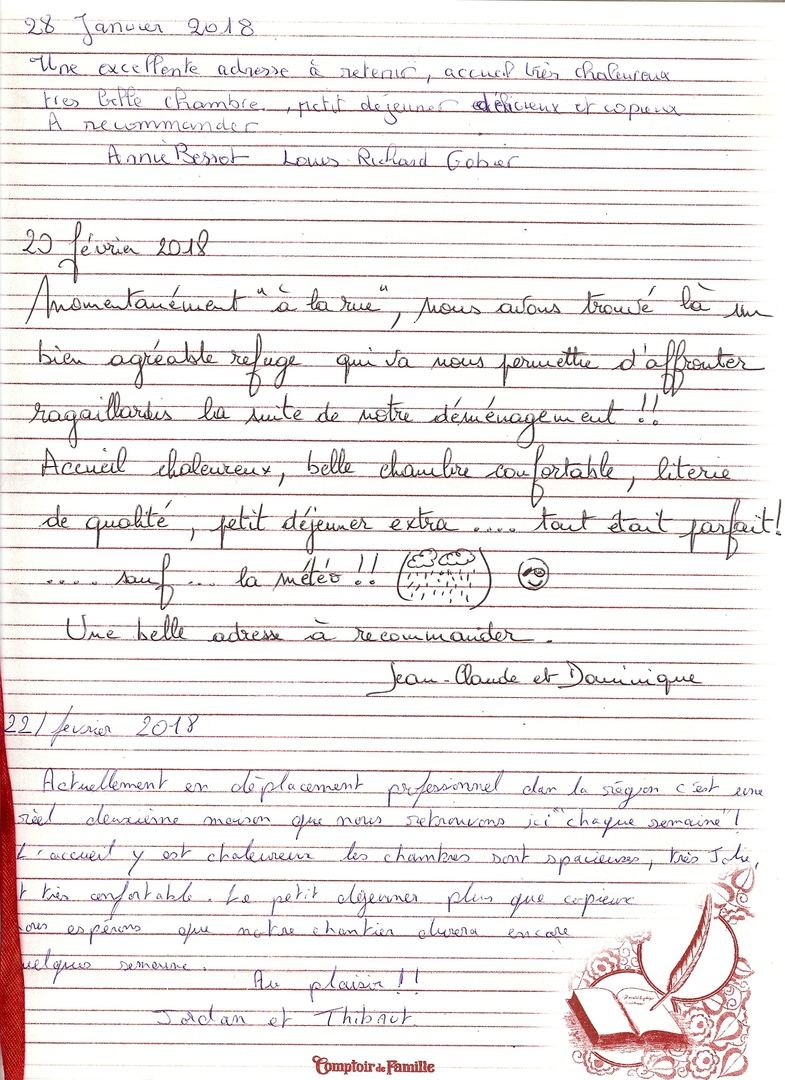 28 Janvier 2018
Une excellente adresse à retenir, accueil très chaleureux
tres belle chambre, petit déjeuner délicieux et copieux
A recommander
Annie Bessot Louis Richard
février 2018
momentanément "à la rue", nous avons trouvé là un
bien agréable refuge qui va nous permettre d'affronter
ragaillardis la suite de notre déménagement !!
Accueil chaleureux, belle chambre confortable, literie
de qualité, petit déjeuner extra .... tout était parfait!
.... sauf ... la météo !!
Une belle adresse à recommander.
Jean-Claude et Dominique
22/ fevrier 2018
Actuellement en déplacement professionnel dan la région c'est une
réel deuxieme maison que nous retrouvons ici "chaque semaine" !
L'accueil y est chaleureux les chambres sont spacieuses, très Jolie,
t très confortable. Le petit déjeuner plus que copieux
ous espérons que notre chantier durera encore
uelques semaine.
Au plaisir !!
Jordan et Thibaut
Comptoir de Famille